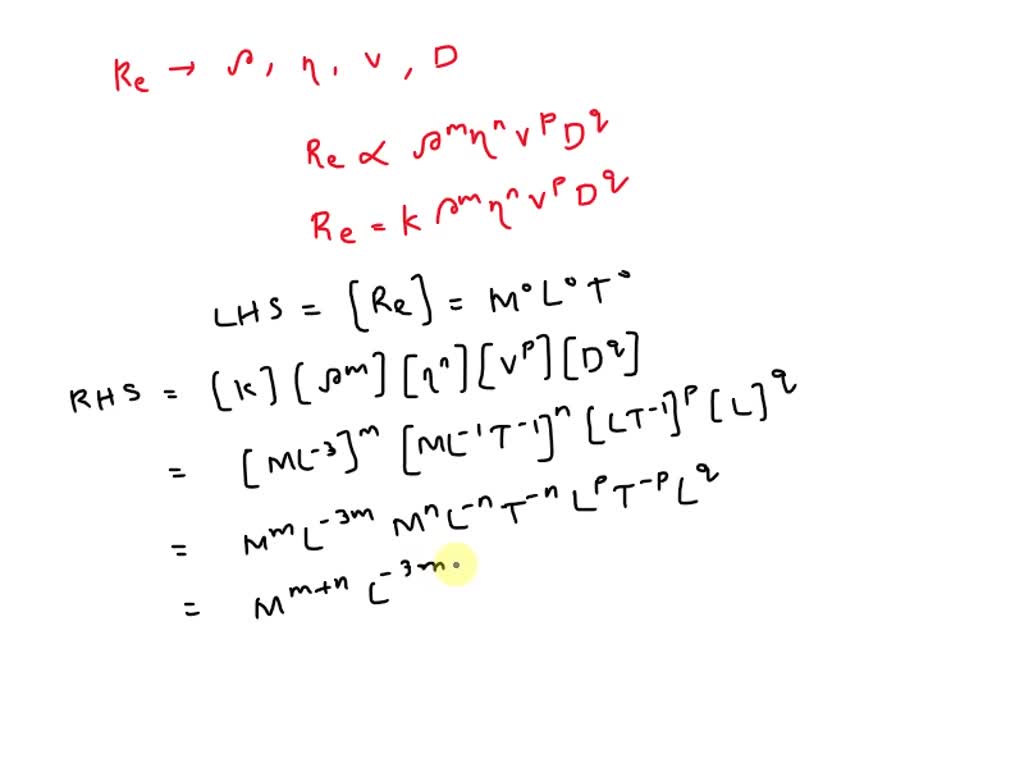 Re → ρ, η, v, D
Re ∝ ρ^m η^n v^p D^q
Re = k ρ^m η^n v^p D^q
LHS = [Re] = M° L° T°
RHS = [k] [ρ^m] [η^n] [v^p] [D^q]
= [ML^-3]^m [ML^-1 T^-1]^n [LT^-1]^p [L]^q
= M^m L^-3m M^n L^-n T^-n L^p T^-p L^q
= M^m+n L^-3m